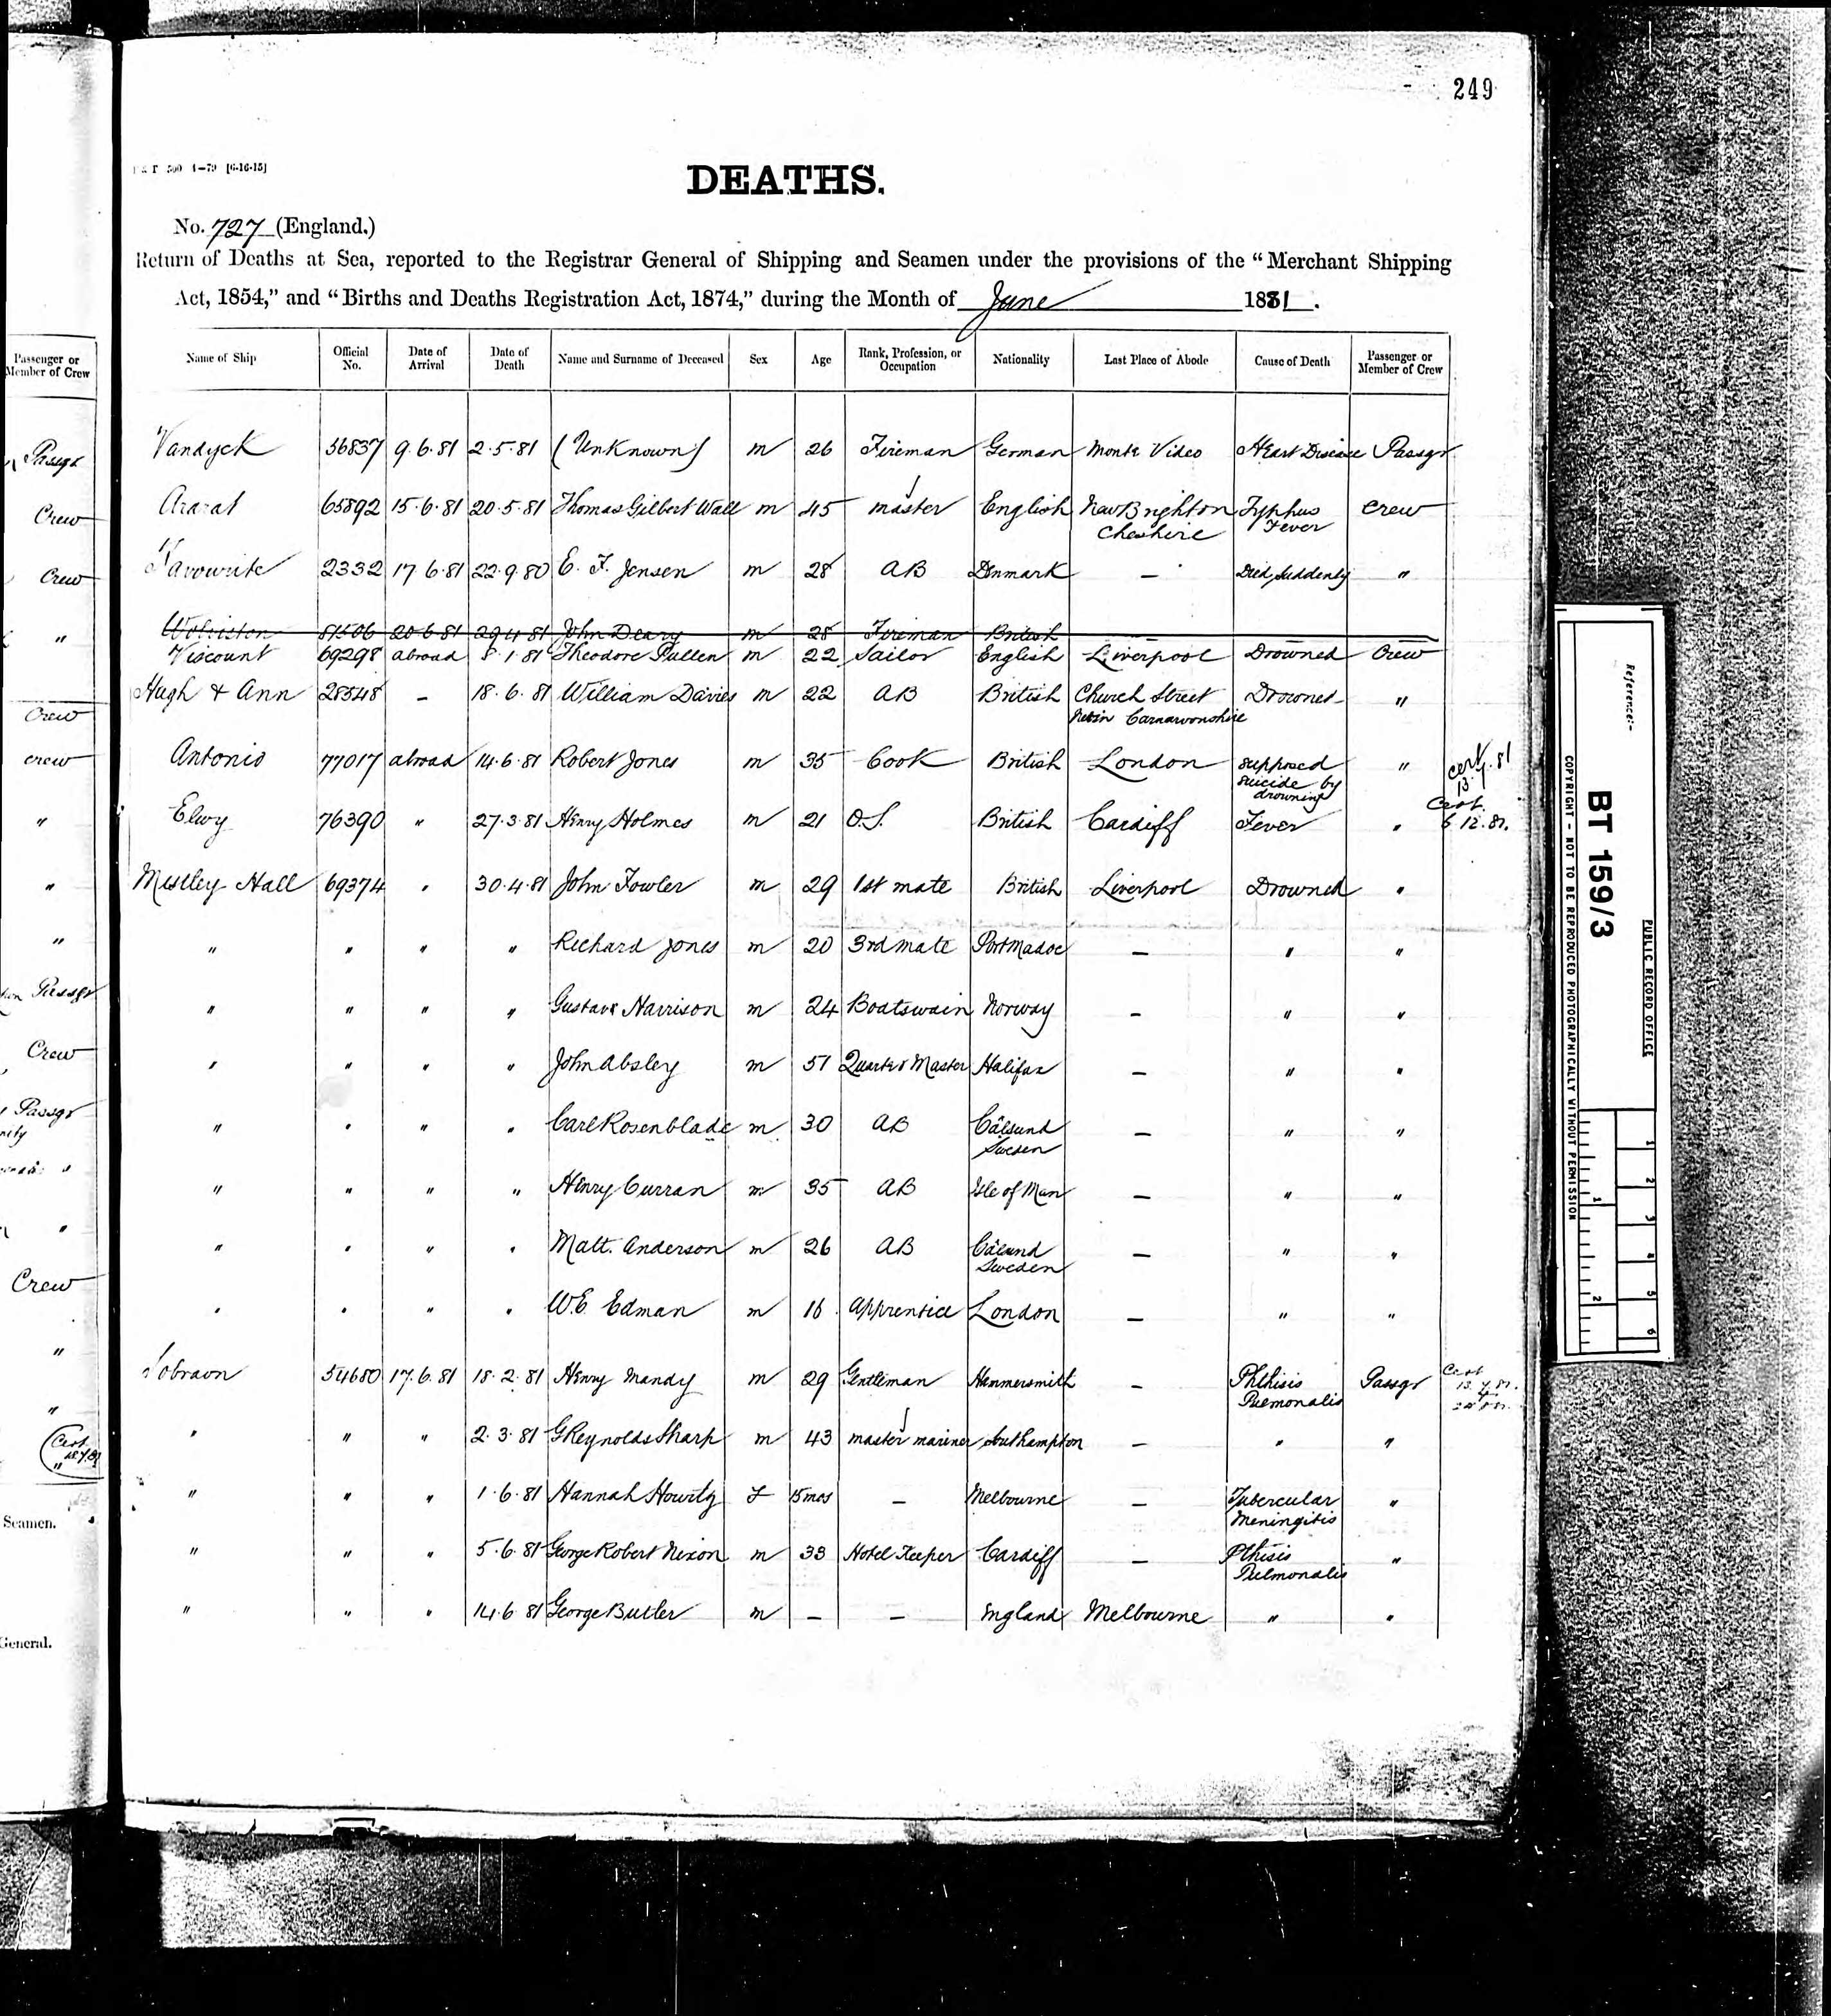 249
DEATHS.
No. 727 (England.)
Return of Deaths at Sea, reported to the Registrar General of Shipping and Seamen under the provisions of the "Merchant Shipping
Act, 1854," and "Births and Deaths Registration Act, 1874," during the Month of June 1881.
Name of Ship Official No. Date of Arrival Date of Death Name and Surname of Deceased Sex Age Rank, Profession, or Occupation Nationality Last Place of Abode Cause of Death Passenger or Member of Crew
Vandyck 56837 9.6.81 2.5.81 (Unknown) m 26 Fireman German Monte Video Heart Disease Passgr
Ararat 65892 15.6.81 20.5.81 Thomas Gilbert Wall m 45 master English New Brighton Cheshire Typhus Fever Crew
Favourite 2332 17.6.81 22.9.80 E. F. Jensen m 28 AB Denmark — Died Suddenly "
Wolviston 81506 20.6.81 29.4.81 John Deary m 28 Fireman British — — —
Viscount 69298 abroad 8.1.81 Theodore Pullen m 22 Sailor English Liverpool Drowned Crew
Hugh & Ann 28548 - 18.6.81 William Davies m 22 AB British Church Street Nevin Carnarvonshire Drowned "
Antonio 77017 abroad 14.6.81 Robert Jones m 35 Cook British London supposed suicide by drowning " cert 13.7.81
Elwy 76390 " 27.3.81 Henry Holmes m 21 O.S. British Cardiff Fever " Cert. 6.12.81.
Mistley Hall 69374 " 30.4.81 John Fowler m 29 1st mate British Liverpool Drowned "
" " " " Richard Jones m 20 3rd mate PortMadoc — " "
" " " " Gustave Harrison m 24 Boatswain Norway — " "
" " " " John Absley m 51 Quarter Master Halifax — " "
" " " " Carl Rosenblade m 30 AB Sweden — " "
" " " " Henry Curran m 35 AB Isle of Man — " "
" " " " Matt. Anderson m 26 AB Sweden — " "
" " " " W.E. Edman m 16 Apprentice London — " "
Sobraon 54680 17.6.81 18.2.81 Henry Mandy m 29 Gentleman Hammersmith — Phthisis Pulmonalis Passgr Cert
" " " 2.3.81 G Reynolds Sharp m 43 master mariner Southampton — " "
" " " 1.6.81 Hannah Howitz F 15 mos — Melbourne — Tubercular Meningitis "
" " " 5.6.81 George Robert Nixon m 33 Hotel Keeper Cardiff — Pthisis Pulmonalis "
" " " 14.6.81 George Butler m — — England Melbourne " "
Passenger or
Member of Crew
Passgr
Crew
Crew
"
Crew
crew
"
"
"
Passgr
Crew
Passgr
"
"
Crew
"
"
Cert
Seamen.
General.
Reference:-
PUBLIC RECORD OFFICE
BT 159/3
COPYRIGHT - NOT TO BE REPRODUCED PHOTOGRAPHICALLY WITHOUT PERMISSION
1 2 3 4 5 6
1 2